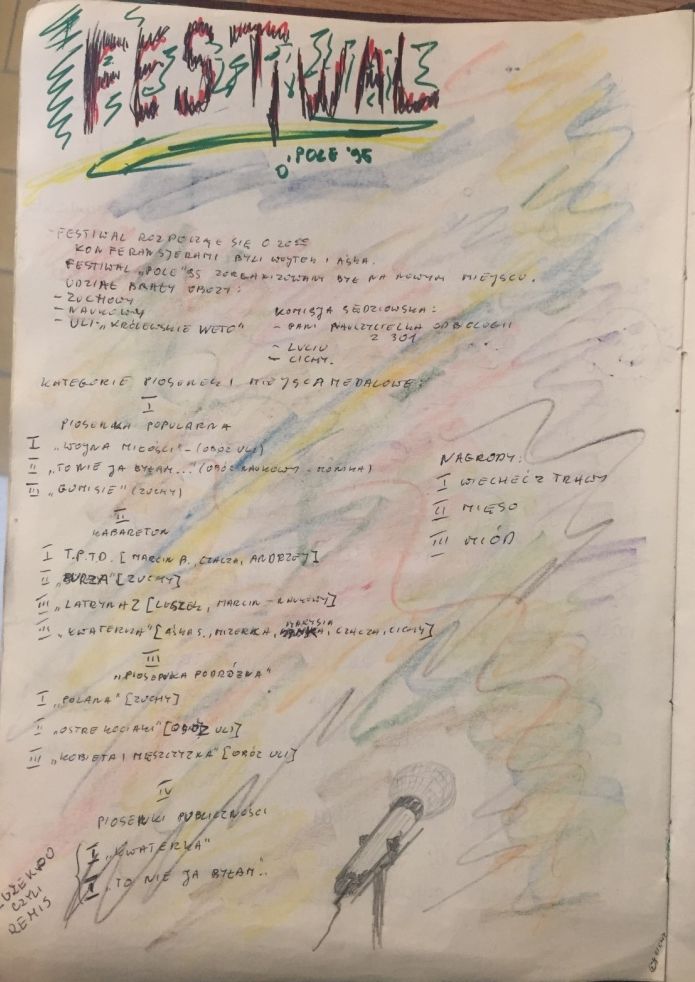 FESTIWAL
O'POLE '95
FESTIWAL ROZPOCZĄŁ SIĘ O 2055
KONFERANSJERAMI BYLI WOJTEK I AŚKA.
FESTIWAL „POLE" 95 ZORGANIZOWANY BYŁ NA NOWYM MIEJSCU.
UDZIAŁ BRAŁY OBOZY:
- ZUCHOWY
- NAUKOWY
- ULI - „KRÓLEWSKIE WETO"
KOMISJA SĘDZIOWSKA:
- PANI NAUCZYCIELKA OD BIOLOGII
Z 301
- LUCIU
- CICHY.
KATEGORIE PIOSENEK I MIEJSCA MEDALOWE:
I
PIOSENKA POPULARNA
I „WOJNA MIŁOŚCI" - (OBÓZ ULI)
II „TO NIE JA BYŁAM..." (OBÓZ NAUKOWY - MONIKA)
III „GUMISIE" (ZUCHY)
NAGRODY:
I WIECHEĆ Z TRAWY
II MIĘSO
III MIÓD
II
KABARETON
I T.P.T.D. [MARCIN B., CZACZA, ANDRZEJ]
II „BURZA" [ZUCHY]
III „LATRYNA Z [LESZEK, MARCIN - NAUKOWY]
III „KWATERKA" [AŚKA S., MIZERKA, MARYSIA, CZACZA, CICHY]
III
„PIOSENKA PODRÓŻNA"
I „POLANA" [ZUCHY]
II „OSTRE KOCIAKI" [OBÓZ ULI]
III „KOBIETA I MĘSZCZYZNA" [OBÓZ ULI]
IV
PIOSENKI PUBLICZNOŚCI
I „KWATERKA"
I „TO NIE JA BYŁAM..
CZYLI
REMIS